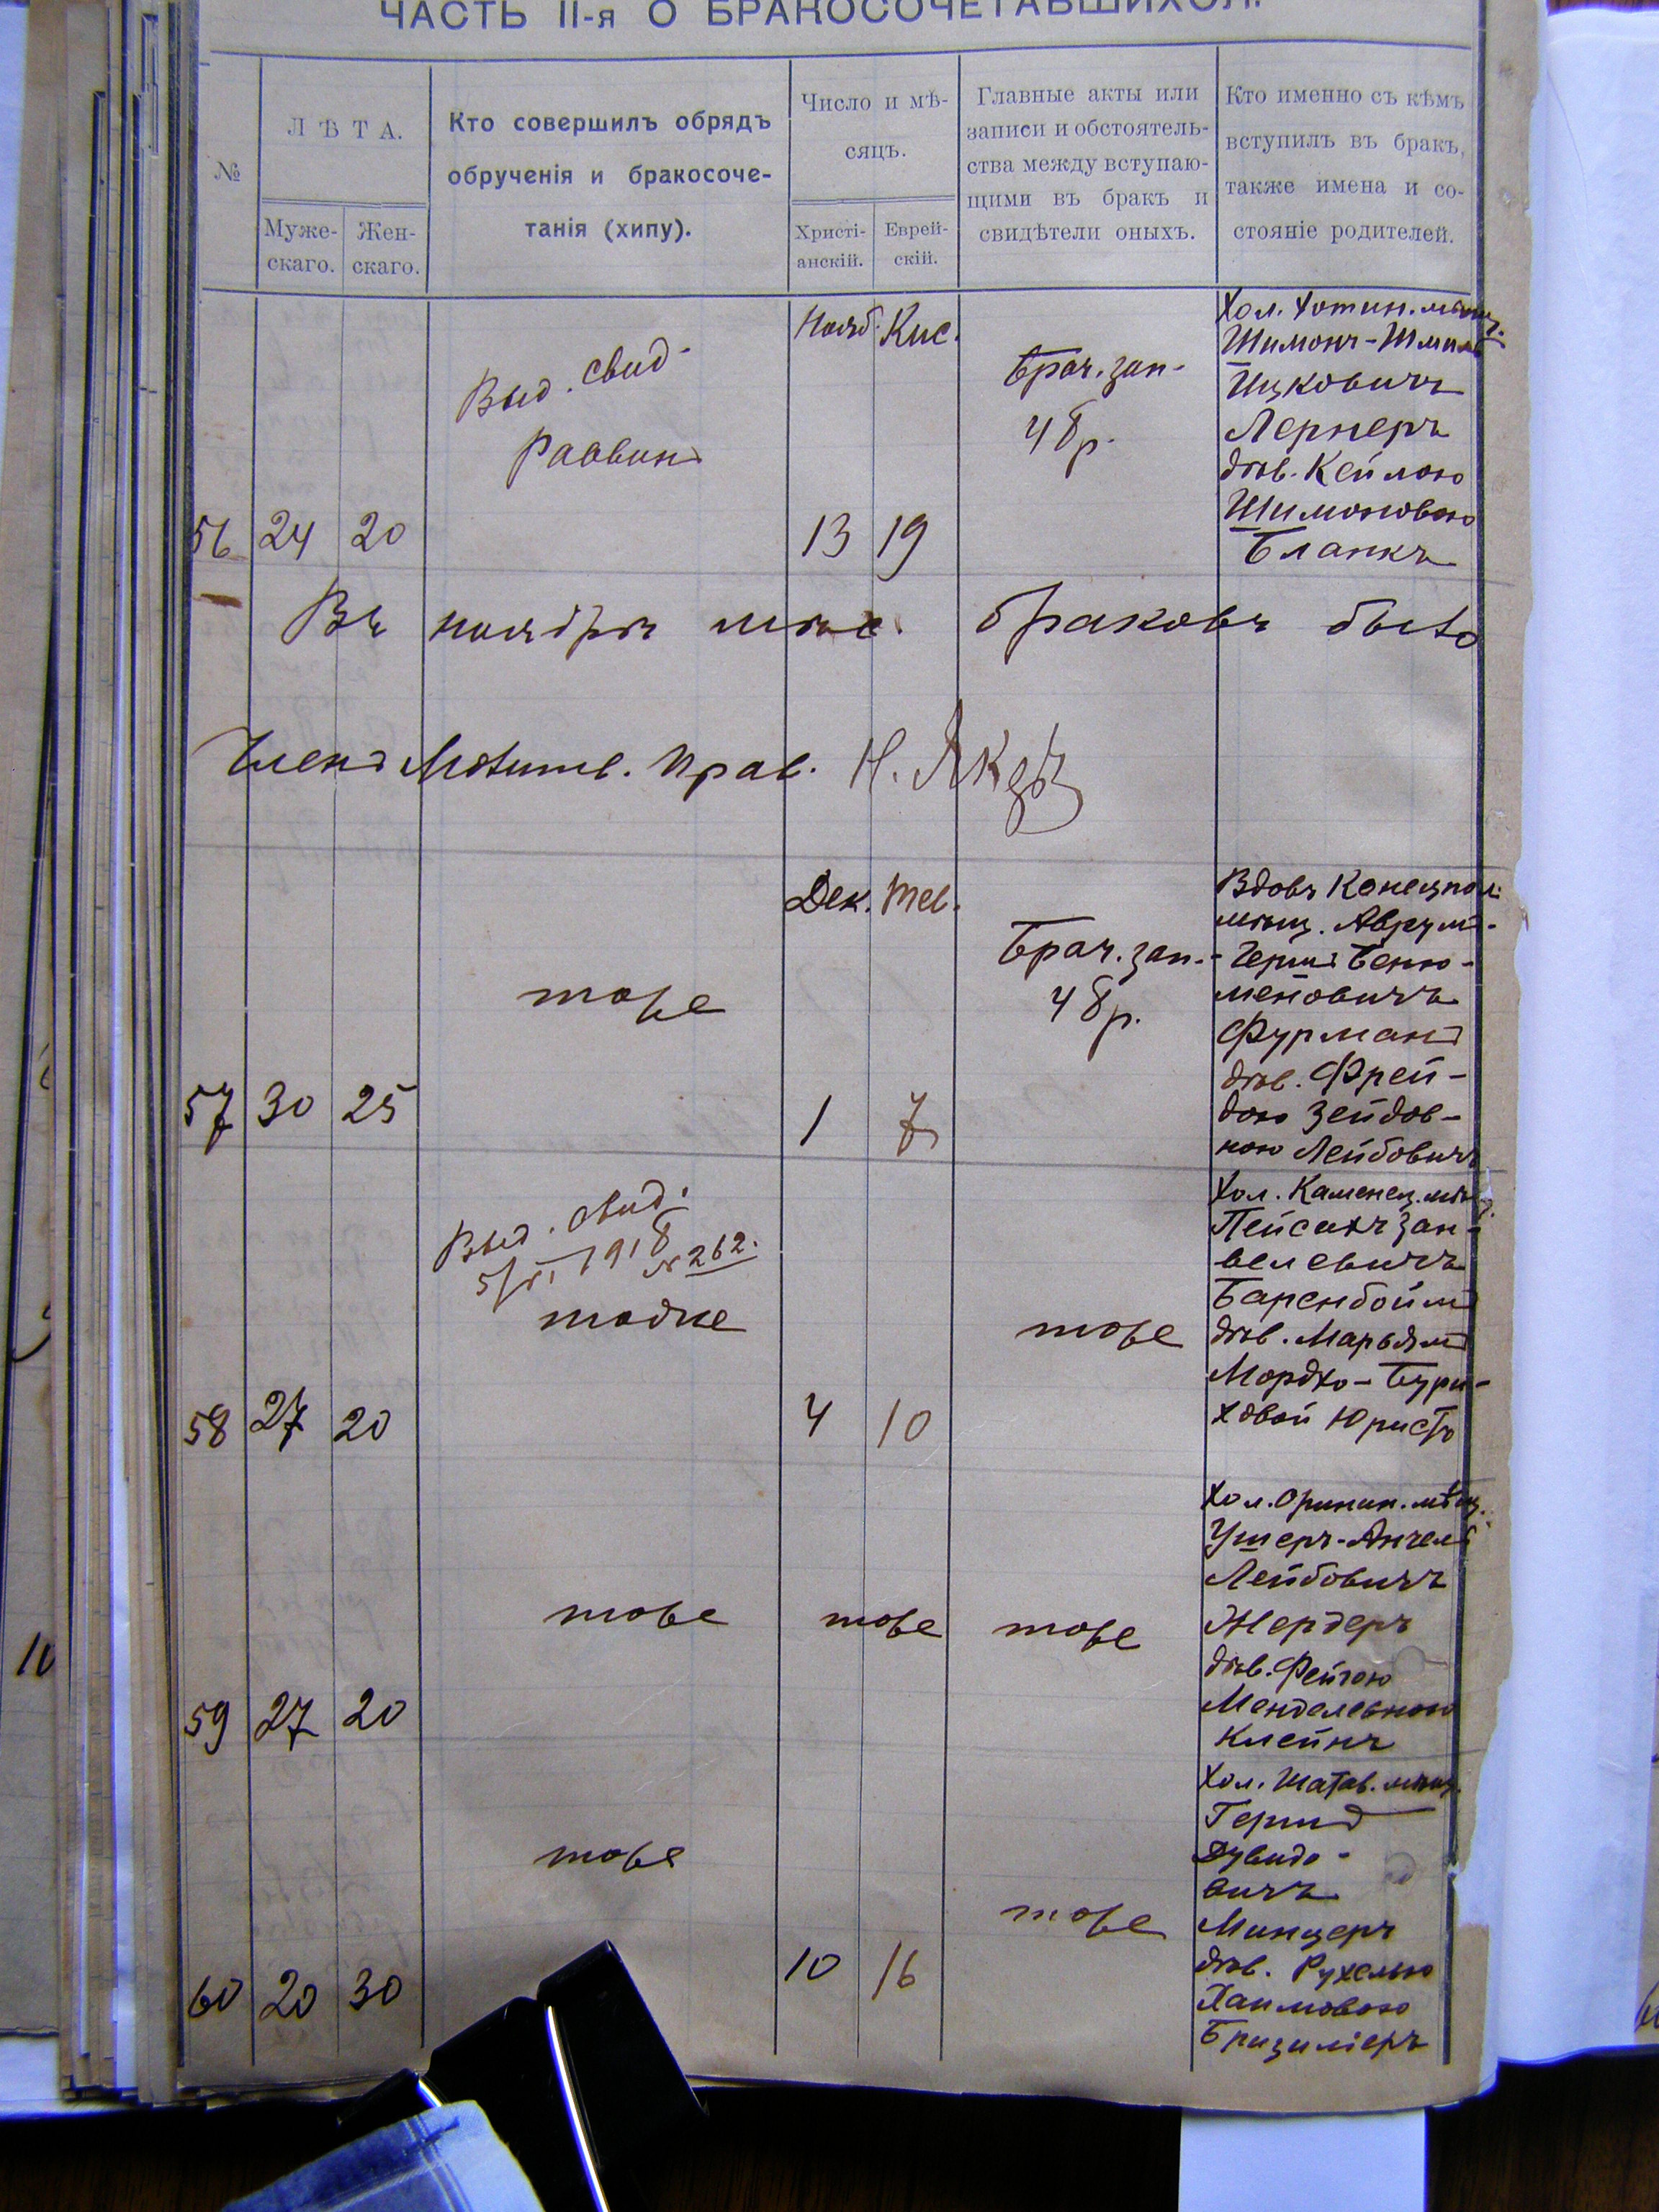 ЧАСТЬ II-я О БРАКОСОЧЕТАВШИХСЯ.
№
ЛѢТА.
Муже-
скаго.
Жен-
скаго.
Кто совершилъ обрядъ
обрученія и бракосоче-
танія (хипу).
Число и мѣ-
сяцъ.
Христі-
анскій.
Еврей-
скій.
Главные акты или
записи и обстоятель-
ства между вступаю-
щими въ бракъ и
свидѣтели оныхъ.
Кто именно съ кѣмъ
вступилъ въ бракъ,
также имена и со-
стояніе родителей.
56
24
20
Выд. свид.
Раввинъ
Нояб.
13
Кис.
19
Брач. зап.
48р.
Хол. Хотин. мѣщ.
Шимонъ-Шмиль
Ицковичъ
Лернеръ
дѣв. Кейлою
Шимоновою
Бланкъ
Въ ноябрѣ мѣс. браковъ было
Членъ Молитв. Прав.
57
30
25
тоже
Дек.
1
Тев.
7
Брач. зап.
48р.
Вдовъ Конецпол.
мѣщ. Аврумъ-
Гершъ Беню-
меновичъ
Фурманъ
дѣв. Фрей-
дою Зейдов-
ною Лейбовичъ
58
27
20
Выд. свид.
1918 № 262.
тоже
4
10
тоже
Хол. Каменец. мѣщ.
Пейсахъ Зан-
велевичъ
Баренбоймъ
дѣв. Марьямъ
Мордко-Бури-
ховой Юристъ
59
27
20
тоже
тоже
тоже
Хол. Оринин. мѣщ.
Ушеръ-Анчель
Лейбовичъ
Жердеръ
дѣв. Фейгою
Менделевною
Клейнъ
60
20
30
тоже
10
16
тоже
Хол. Шатав. мѣщ.
Гершъ
Дувидо-
вичъ
Минцеръ
дѣв. Рухелью
Хаимовою